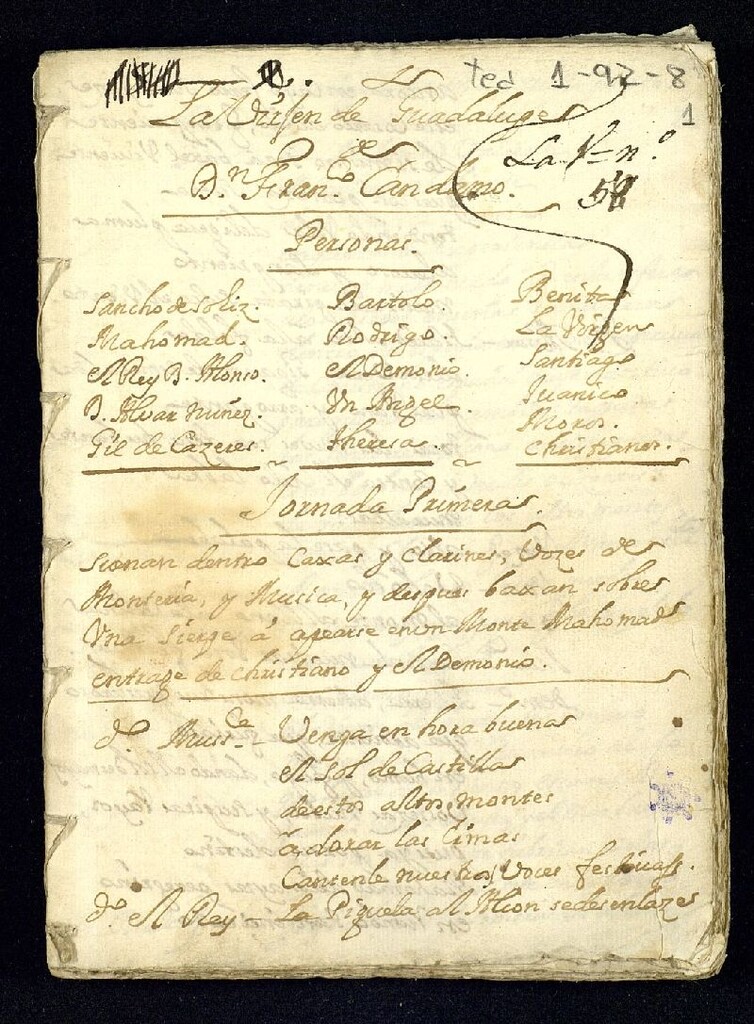 tea 1-92-8
1
La Virjen de Guadalupe
de
D.n Fran.co Candamo.
La V= n.o
Personas.
Sancho de Soliz. Bartolo. Benita
Mahomad. Rodrigo. La Virgen
el Rey D. Alonso. el Demonio. Santiago
D. Alvar Nuñez. Vn Angel. Juanico
Gil de Cazeres. theresa. Moros.
Christianos.
Jornada Primera.
Suenan dentro Caxas y Clarines, Vozes de
Monteria, y Musica, y despues baxan sobre
Vna Sierpe á apearse en un Monte Mahomad
en trage de Christiano y el Demonio.
d.o Mus.ce Venga en hora buena
el Sol de Castilla
de estos altos montes
á dorar las Cimas
Cantenle nuestras Voces festivas.
d.o el Rey - La Piguela al Alcon se desenlaze